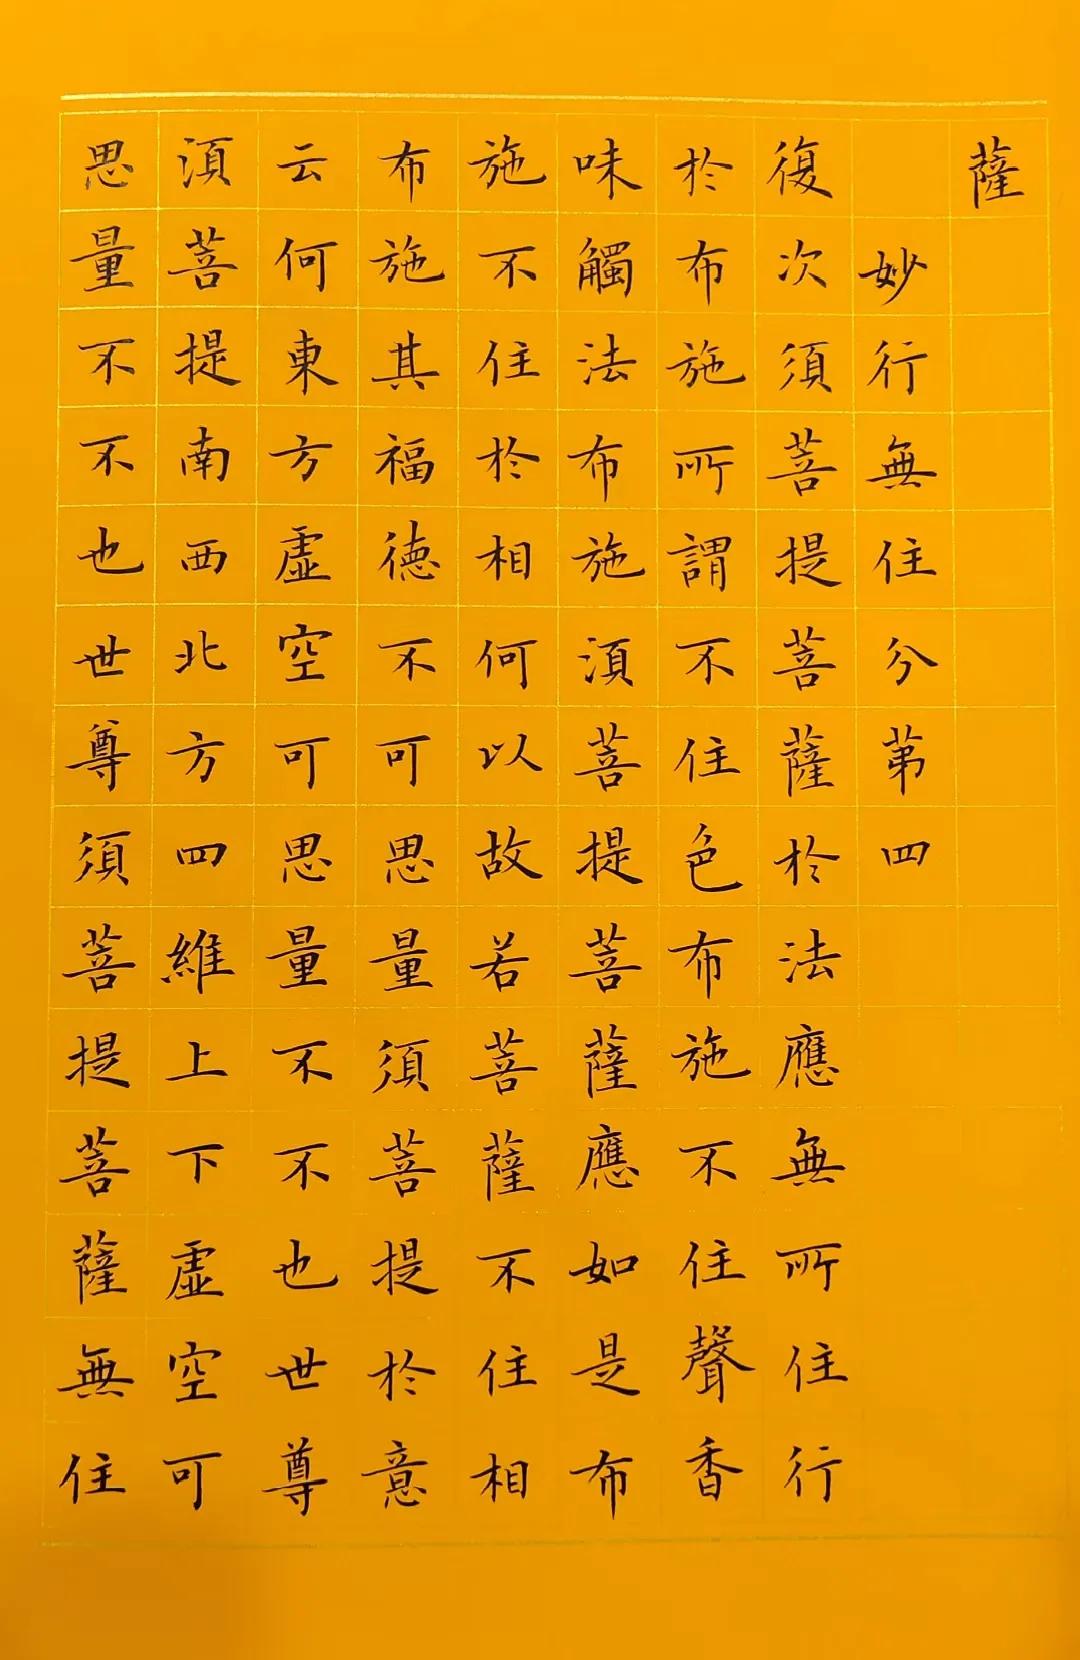 薩
妙行無住分第四
復次須菩提菩薩於法應無所住行
於布施所謂不住色布施不住聲香
味觸法布施須菩提菩薩應如是布
施不住於相何以故若菩薩不住相
布施其福德不可思量須菩提於意
云何東方虛空可思量不不也世尊
須菩提南西北方四維上下虛空可
思量不不也世尊須菩提菩薩無住